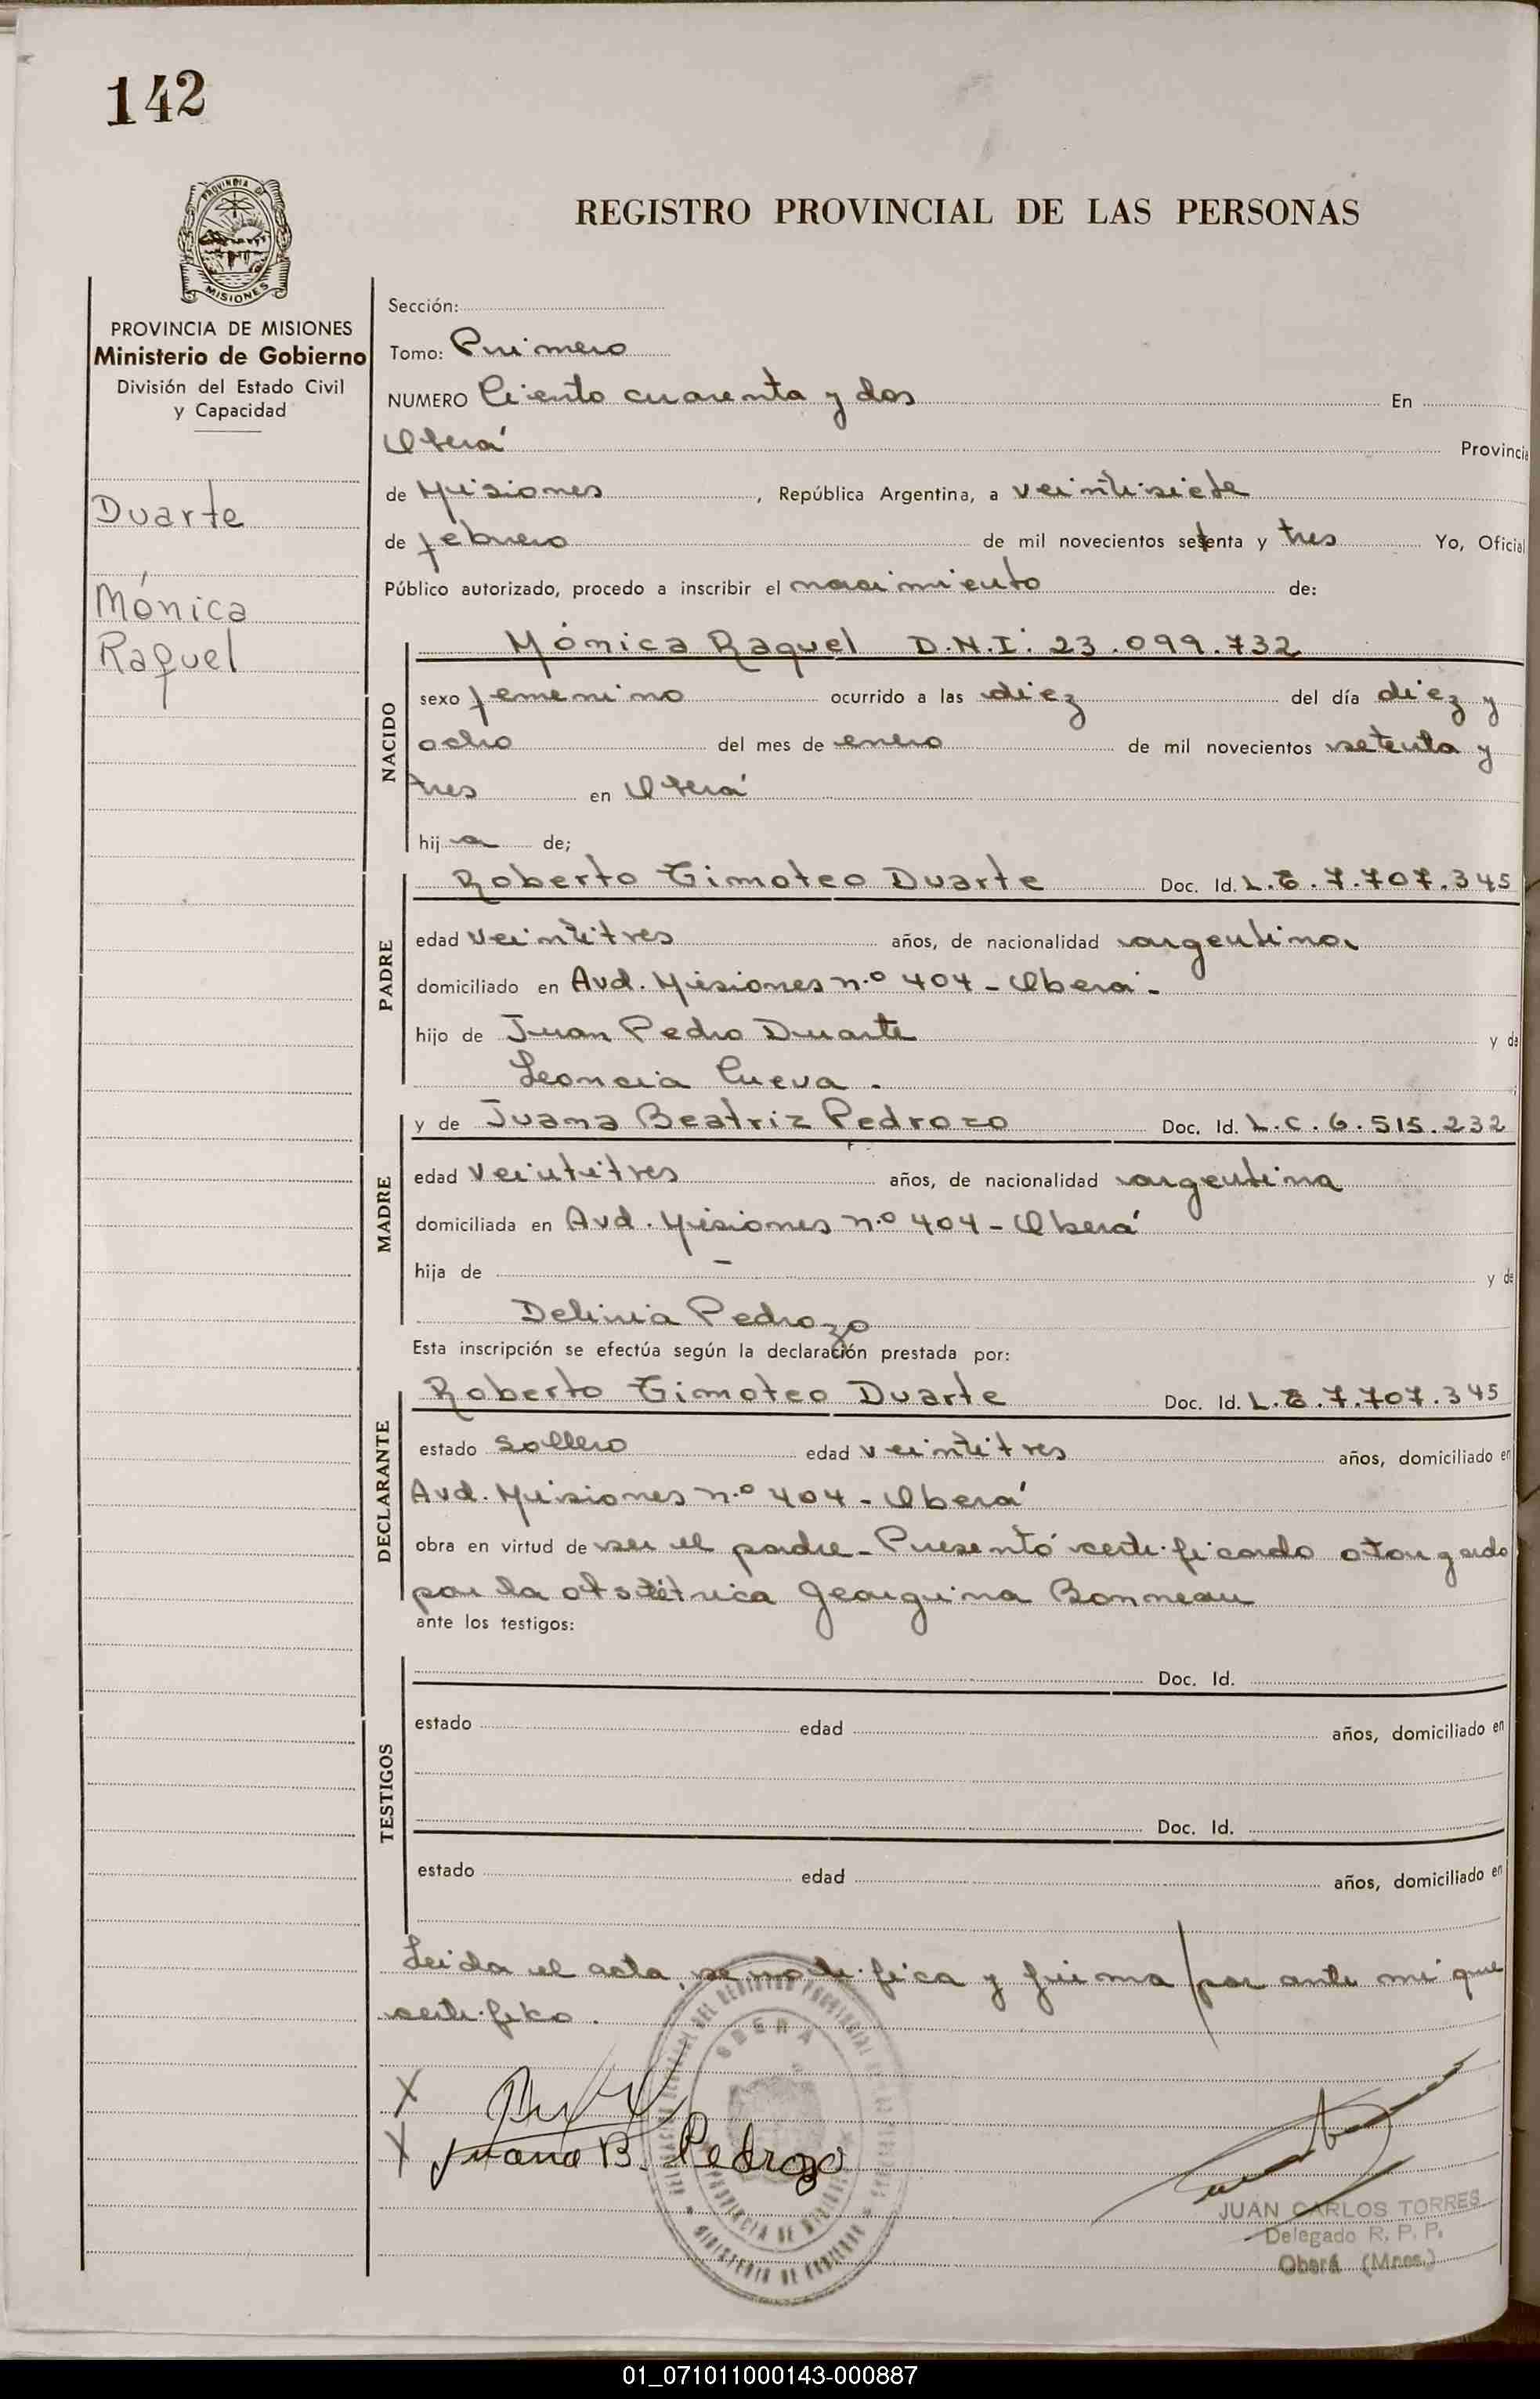 142
PROVINCIA DE
MISIONES
REGISTRO PROVINCIAL DE LAS PERSONAS
PROVINCIA DE MISIONES
Ministerio de Gobierno
División del Estado Civil
y Capacidad
Duarte
Mónica
Raquel
Sección:
Tomo: Primero
NUMERO Ciento cuarenta y dos En
Oberá Provincia
de Misiones , República Argentina, a veintisiete
de febrero de mil novecientos setenta y tres Yo, Oficial
Público autorizado, procedo a inscribir el nacimiento de:
NACIDO
Mónica Raquel D.N.I. 23.099.732
sexo femenino ocurrido a las diez del día diez y
ocho del mes de enero de mil novecientos setenta y
tres en Oberá
hij a de;
PADRE
Roberto Timoteo Duarte Doc. Id. L.E. 7.707.345
edad veintitres años, de nacionalidad argentina
domiciliado en Avd. Misiones n.º 404 - Oberá -
hijo de Juan Pedro Duarte y de
Leoncia Cueva .
MADRE
y de Juana Beatriz Pedrozo Doc. Id. L.C. 6.515.232
edad veintitres años, de nacionalidad argentina
domiciliada en Avd. Misiones n.º 404 - Oberá
hija de - y de
Delinia Pedrozo
Esta inscripción se efectúa según la declaración prestada por:
DECLARANTE
Roberto Timoteo Duarte Doc. Id. L.E. 7.707.345
estado soltero edad veintitres años, domiciliado en
Avd. Misiones n.º 404 - Oberá
obra en virtud de ser el padre - Presentó certificado otorgado
por la obstétrica Georgina Bonneau
ante los testigos:
TESTIGOS
Doc. Id.
estado edad años, domiciliado en
Doc. Id.
estado edad años, domiciliado en
Leida el acta, se notifica y firma / por ante mi que
certifico .
X
X Juana B. Pedrozo
OBERA
PROVINCIA DE MISIONES
MINISTERIO DE GOBIERNO
JUAN CARLOS TORRES
Delegado R. P. P.
Oberá (Mnes.)
01_071011000143-000887